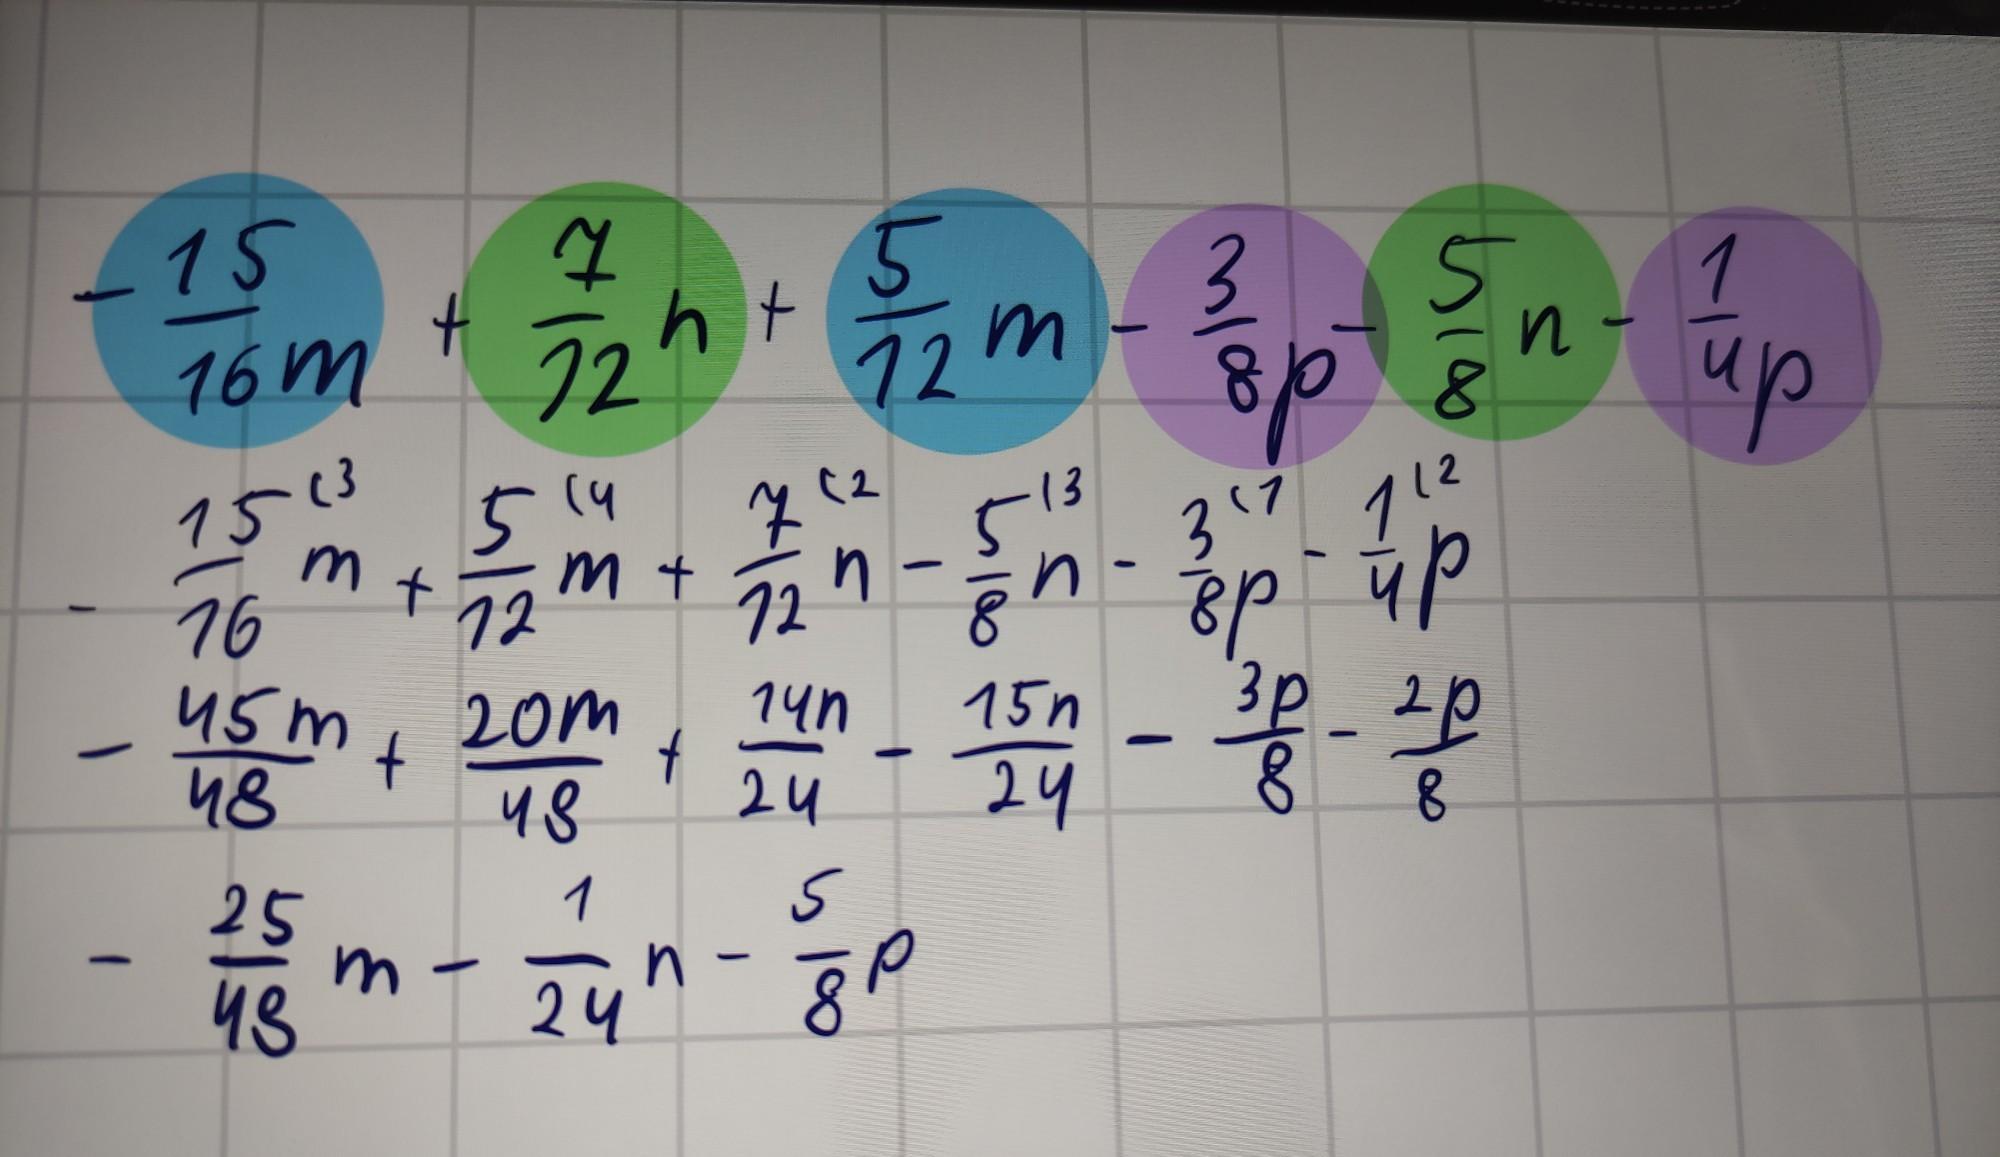 - 15/16 m + 7/12 n + 5/12 m - 3/8 p - 5/8 n - 1/4 p
- 15/16 (3 m + 5/12 (4 m + 7/12 (2 n - 5/8 (3 n - 3/8 (1 p - 1/4 (2 p
- 45m/48 + 20m/48 + 14n/24 - 15n/24 - 3p/8 - 2p/8
- 25/48 m - 1/24 n - 5/8 p